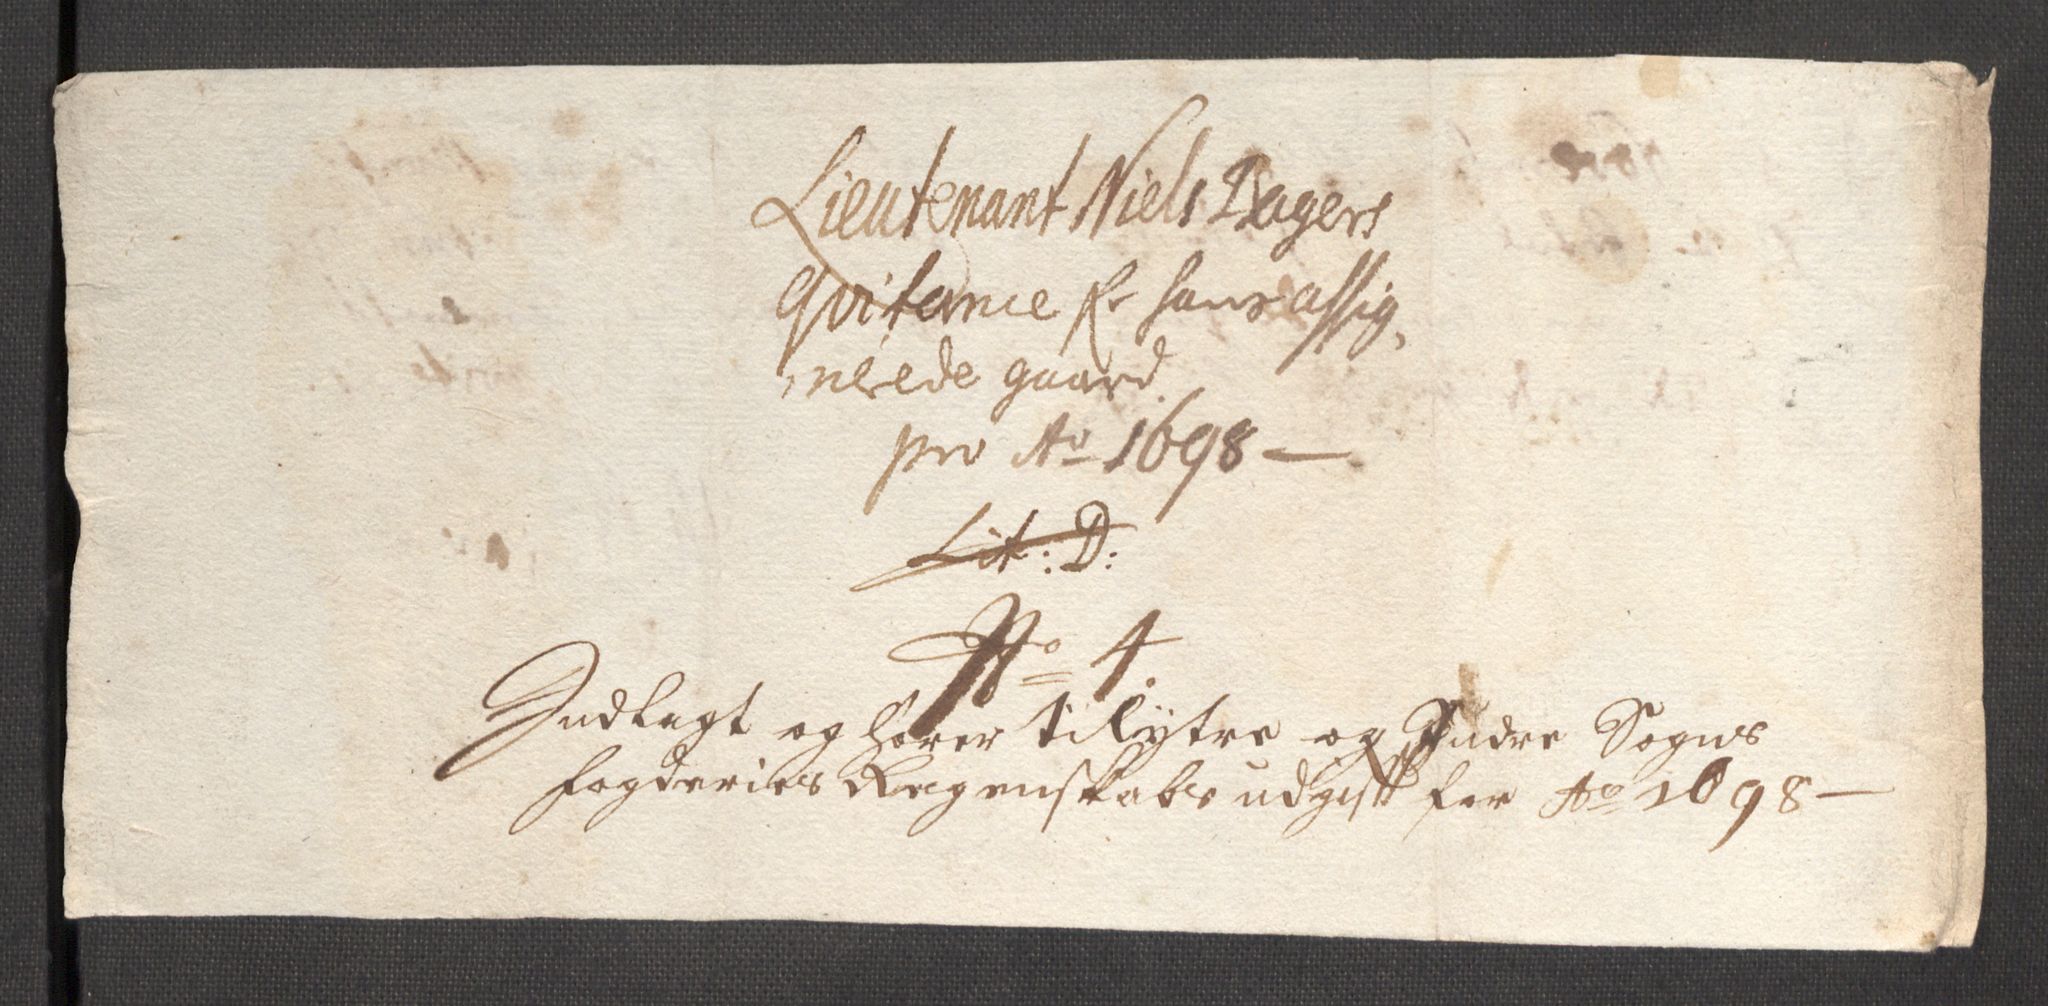 Lieutenant Niels Dagers
Qvitance for hans assig,
nerede gaard
pro Ao 1698 —
Lit: D:
No 4.
Indlagt og hører til ytre og Indre Sogns
fogderies Regenskabs udgift for Ao 1698 —